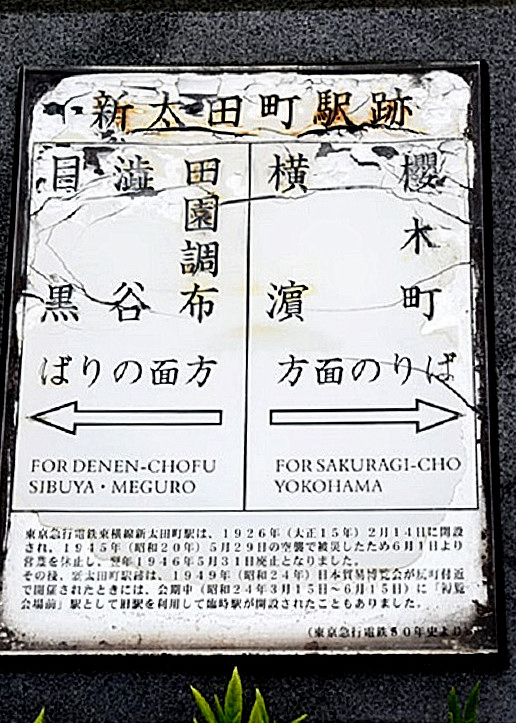 新太田町駅跡
田園調布
澁谷
目黒
ばりの面方
FOR DENEN-CHOFU
SIBUYA・MEGURO
櫻木町
横濱
方面のりば
FOR SAKURAGI-CHO
YOKOHAMA
東京急行電鉄東横線新太田町駅は、1926年（大正15年）2月14日に開設
され、1945年（昭和20年）5月29日の空襲で被災したため6月1日より
営業を休止し、翌年1946年5月31日廃止となりました。
その後、新太田町駅跡は、1949年（昭和24年）日本貿易博覧会が反町付近
で開催されたときには、会期中（昭和24年3月15日〜6月15日）に「博覧
会場前」駅として旧駅を利用して臨時駅が開設されたこともありました。
（東京急行電鉄50年史より）